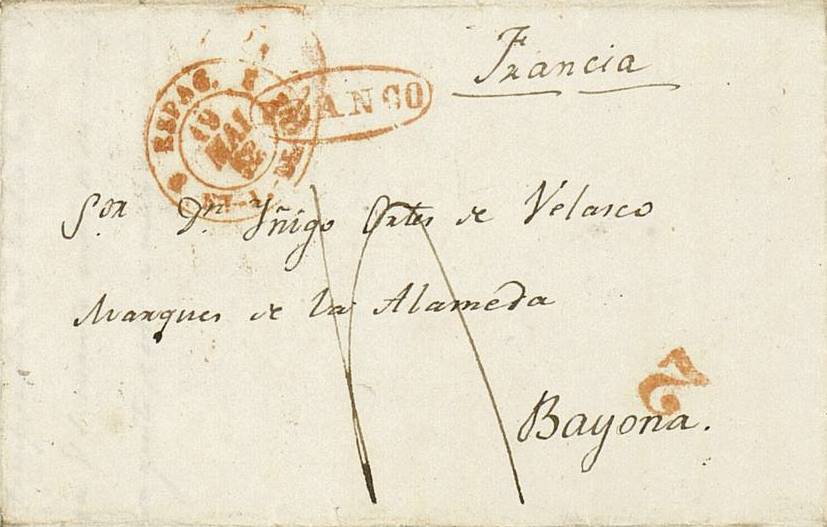 Francia
ANGO
ESPAG.
19
MAI
Sor. Dn. Yñigo Ortes de Velasco
Marques de la Alameda
2
Bayona.